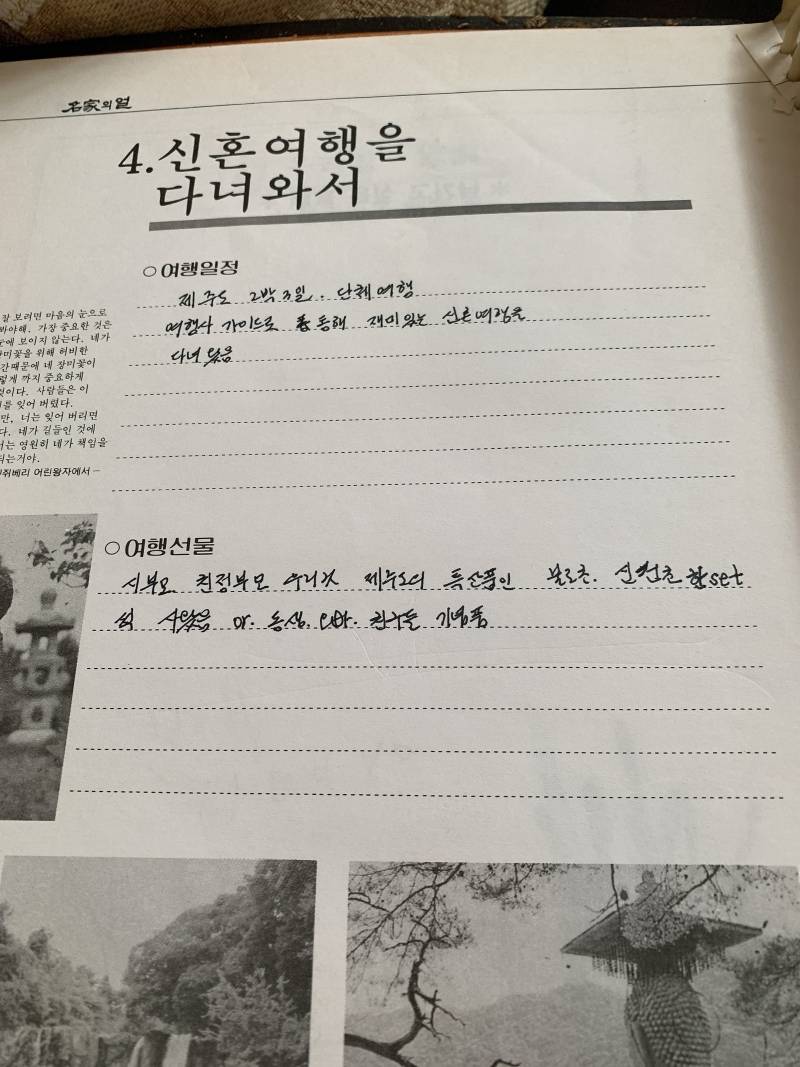 名家의 얼
4. 신혼여행을
다녀와서
○ 여행일정
제주도 2박3일. 단체여행
여행사 가이드로 통해 재미있는 신혼여행을
다녀 왔음
장 보려면 마음의 눈으로
봐야해. 가장 중요한 것은
눈에 보이지 않는다. 네가
장미꽃을 위해 허비한
간때문에 네 장미꽃이
렇게 까지 중요하게
것이다. 사람들은 이
를 잊어 버렸다.
만, 너는 잊어 버리면
다. 네가 길들인 것에
너는 영원히 네가 책임을
되는거야.
쥐베리 어린왕자에서 –
○ 여행선물
시부모 친정부모 우리것 제주도의 특산품인 불로초. 신선초 한set
씩 사왔음 or. 동생, 오빠. 친구들 기념품